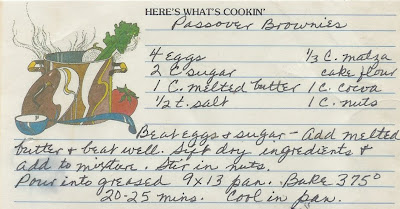 HERE'S WHAT'S COOKIN'
Passover Brownies
4 eggs 1/3 C. matza
2 C sugar cake flour
1 C. melted butter 1 C. cocoa
1/2 t. salt 1 C. nuts
Beat eggs & sugar - Add melted
butter & beat well. Sift dry ingredients &
add to mixture. Stir in nuts.
Pour into greased 9x13 pan. Bake 375°
20-25 mins. Cool in pan.